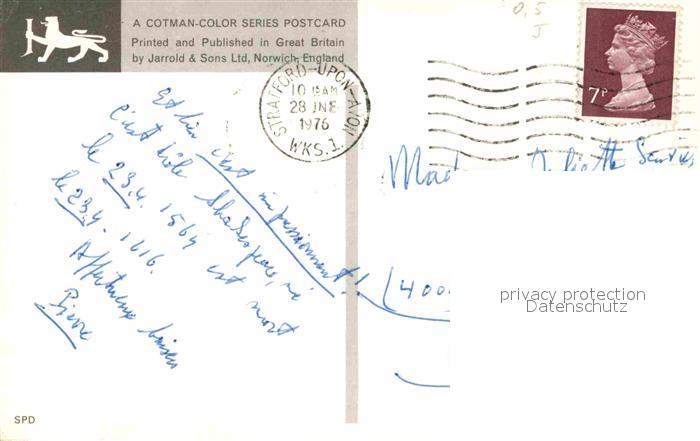 A COTMAN-COLOR SERIES POSTCARD
Printed and Published in Great Britain
by Jarrold & Sons Ltd, Norwich, England
STRATFORD-UPON-AVON
10 15 AM
28 JNE
1976
WKS. 1.
7P
0,5
J
Et bien c'est impressionnant!
C'est drôle Shakespeare, né
le 23.4. 1564 est mort
le 23.4. 1616.
Affectueux baisers
Pierre
Juliette
400
privacy protection
Datenschutz
SPD